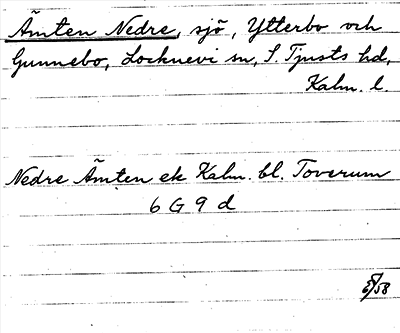 Ämten Nedre, sjö, Ytterbo och
Gunnebo, Locknevi sn, S. Tjusts hd,
Kalm. l.
Nedre Ämten ek Kalm. bl. Toverum
6 G 9 d